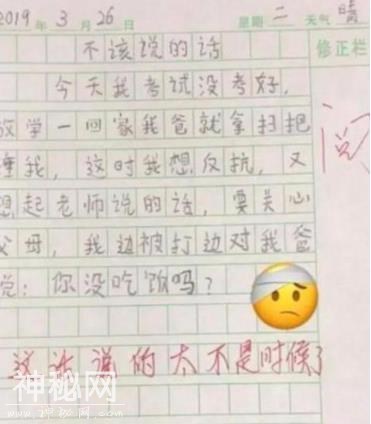 2019年3月26日 星期二 天气晴
不该说的话 修正栏
今天我考试没考好，
放学一回家我爸就拿扫把
捶我，这时我想反抗，又
想起老师说的话，要关心
父母，我边被打边对我爸
说：你没吃饭吗？
阅
这话说的太不是时候了
神秘网